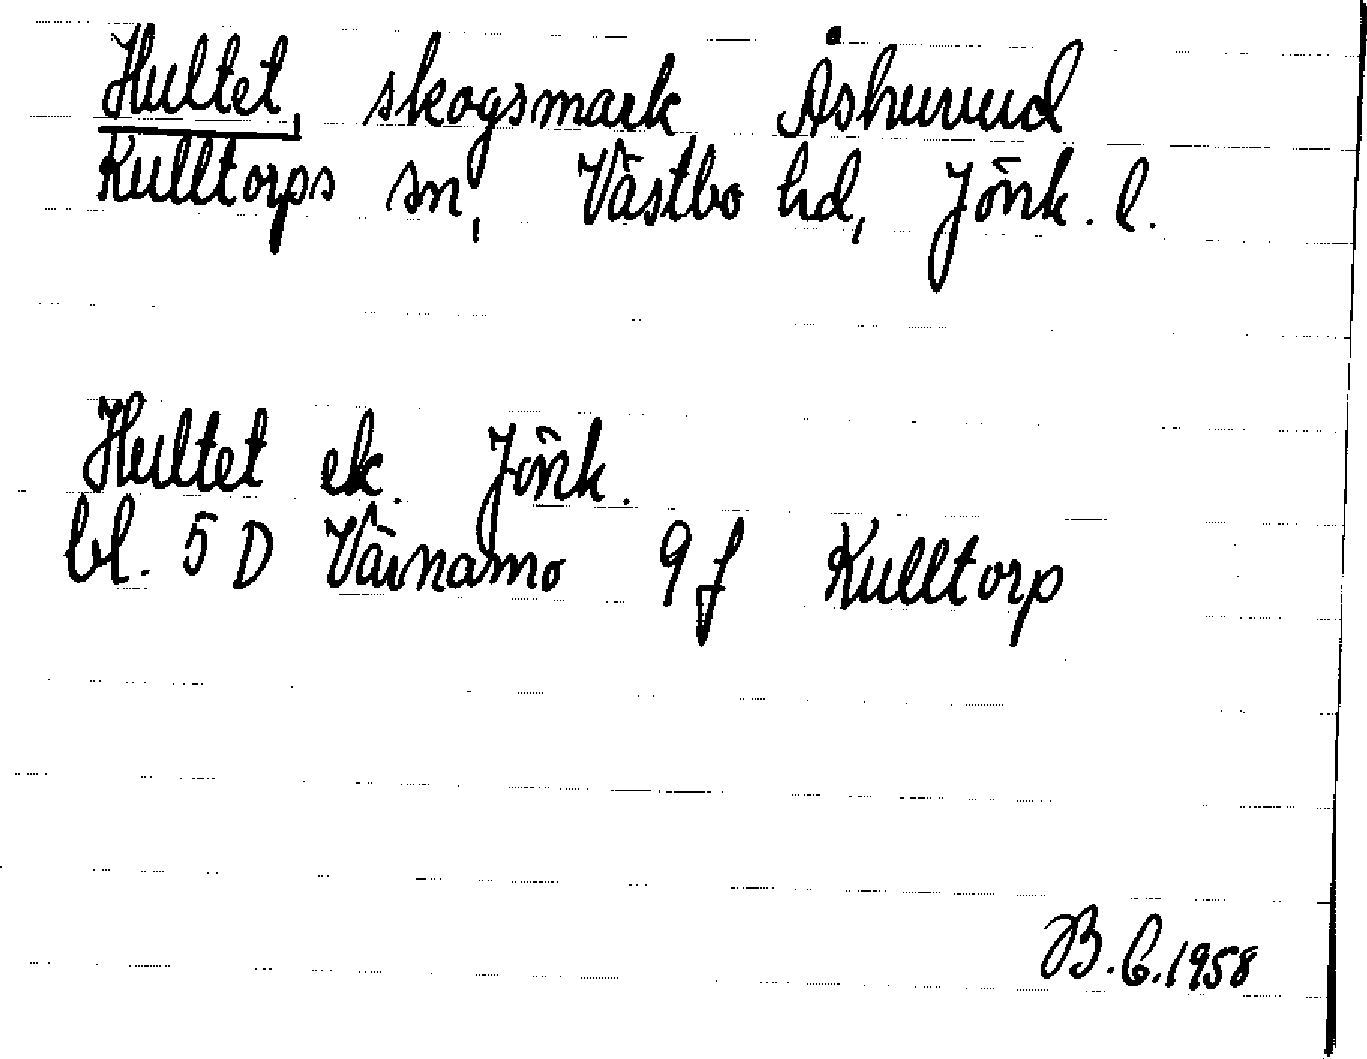 Hultet, skogsmark Åshuvud
Kulltorps sn, Västbo hd, Jönk. l.
Hultet ek. Jönk.
bl. 5 D Värnamo 9 f Kulltorp
B.C.1958